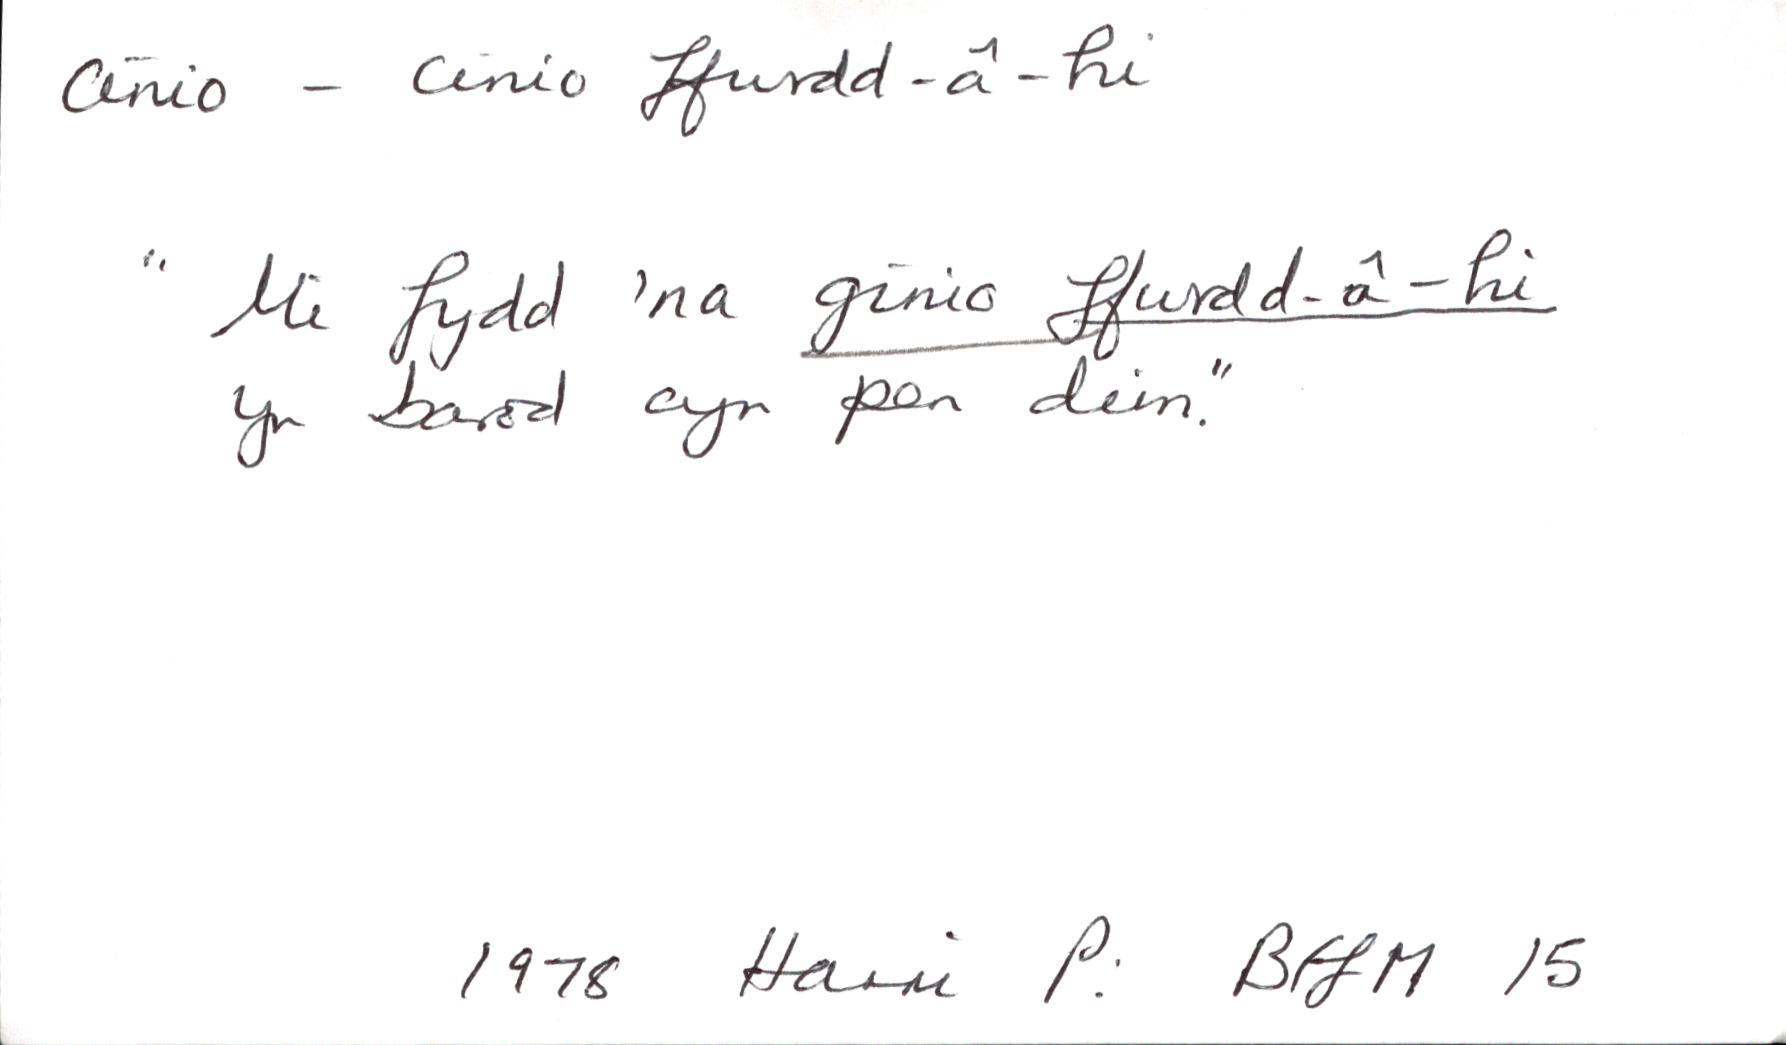 Cinio - Cinio ffurdd-â-hi
"Mi fydd 'na ginio ffurdd-â-hi
yn barod cyn pen dim."
1978 Harri P. BFfM 15